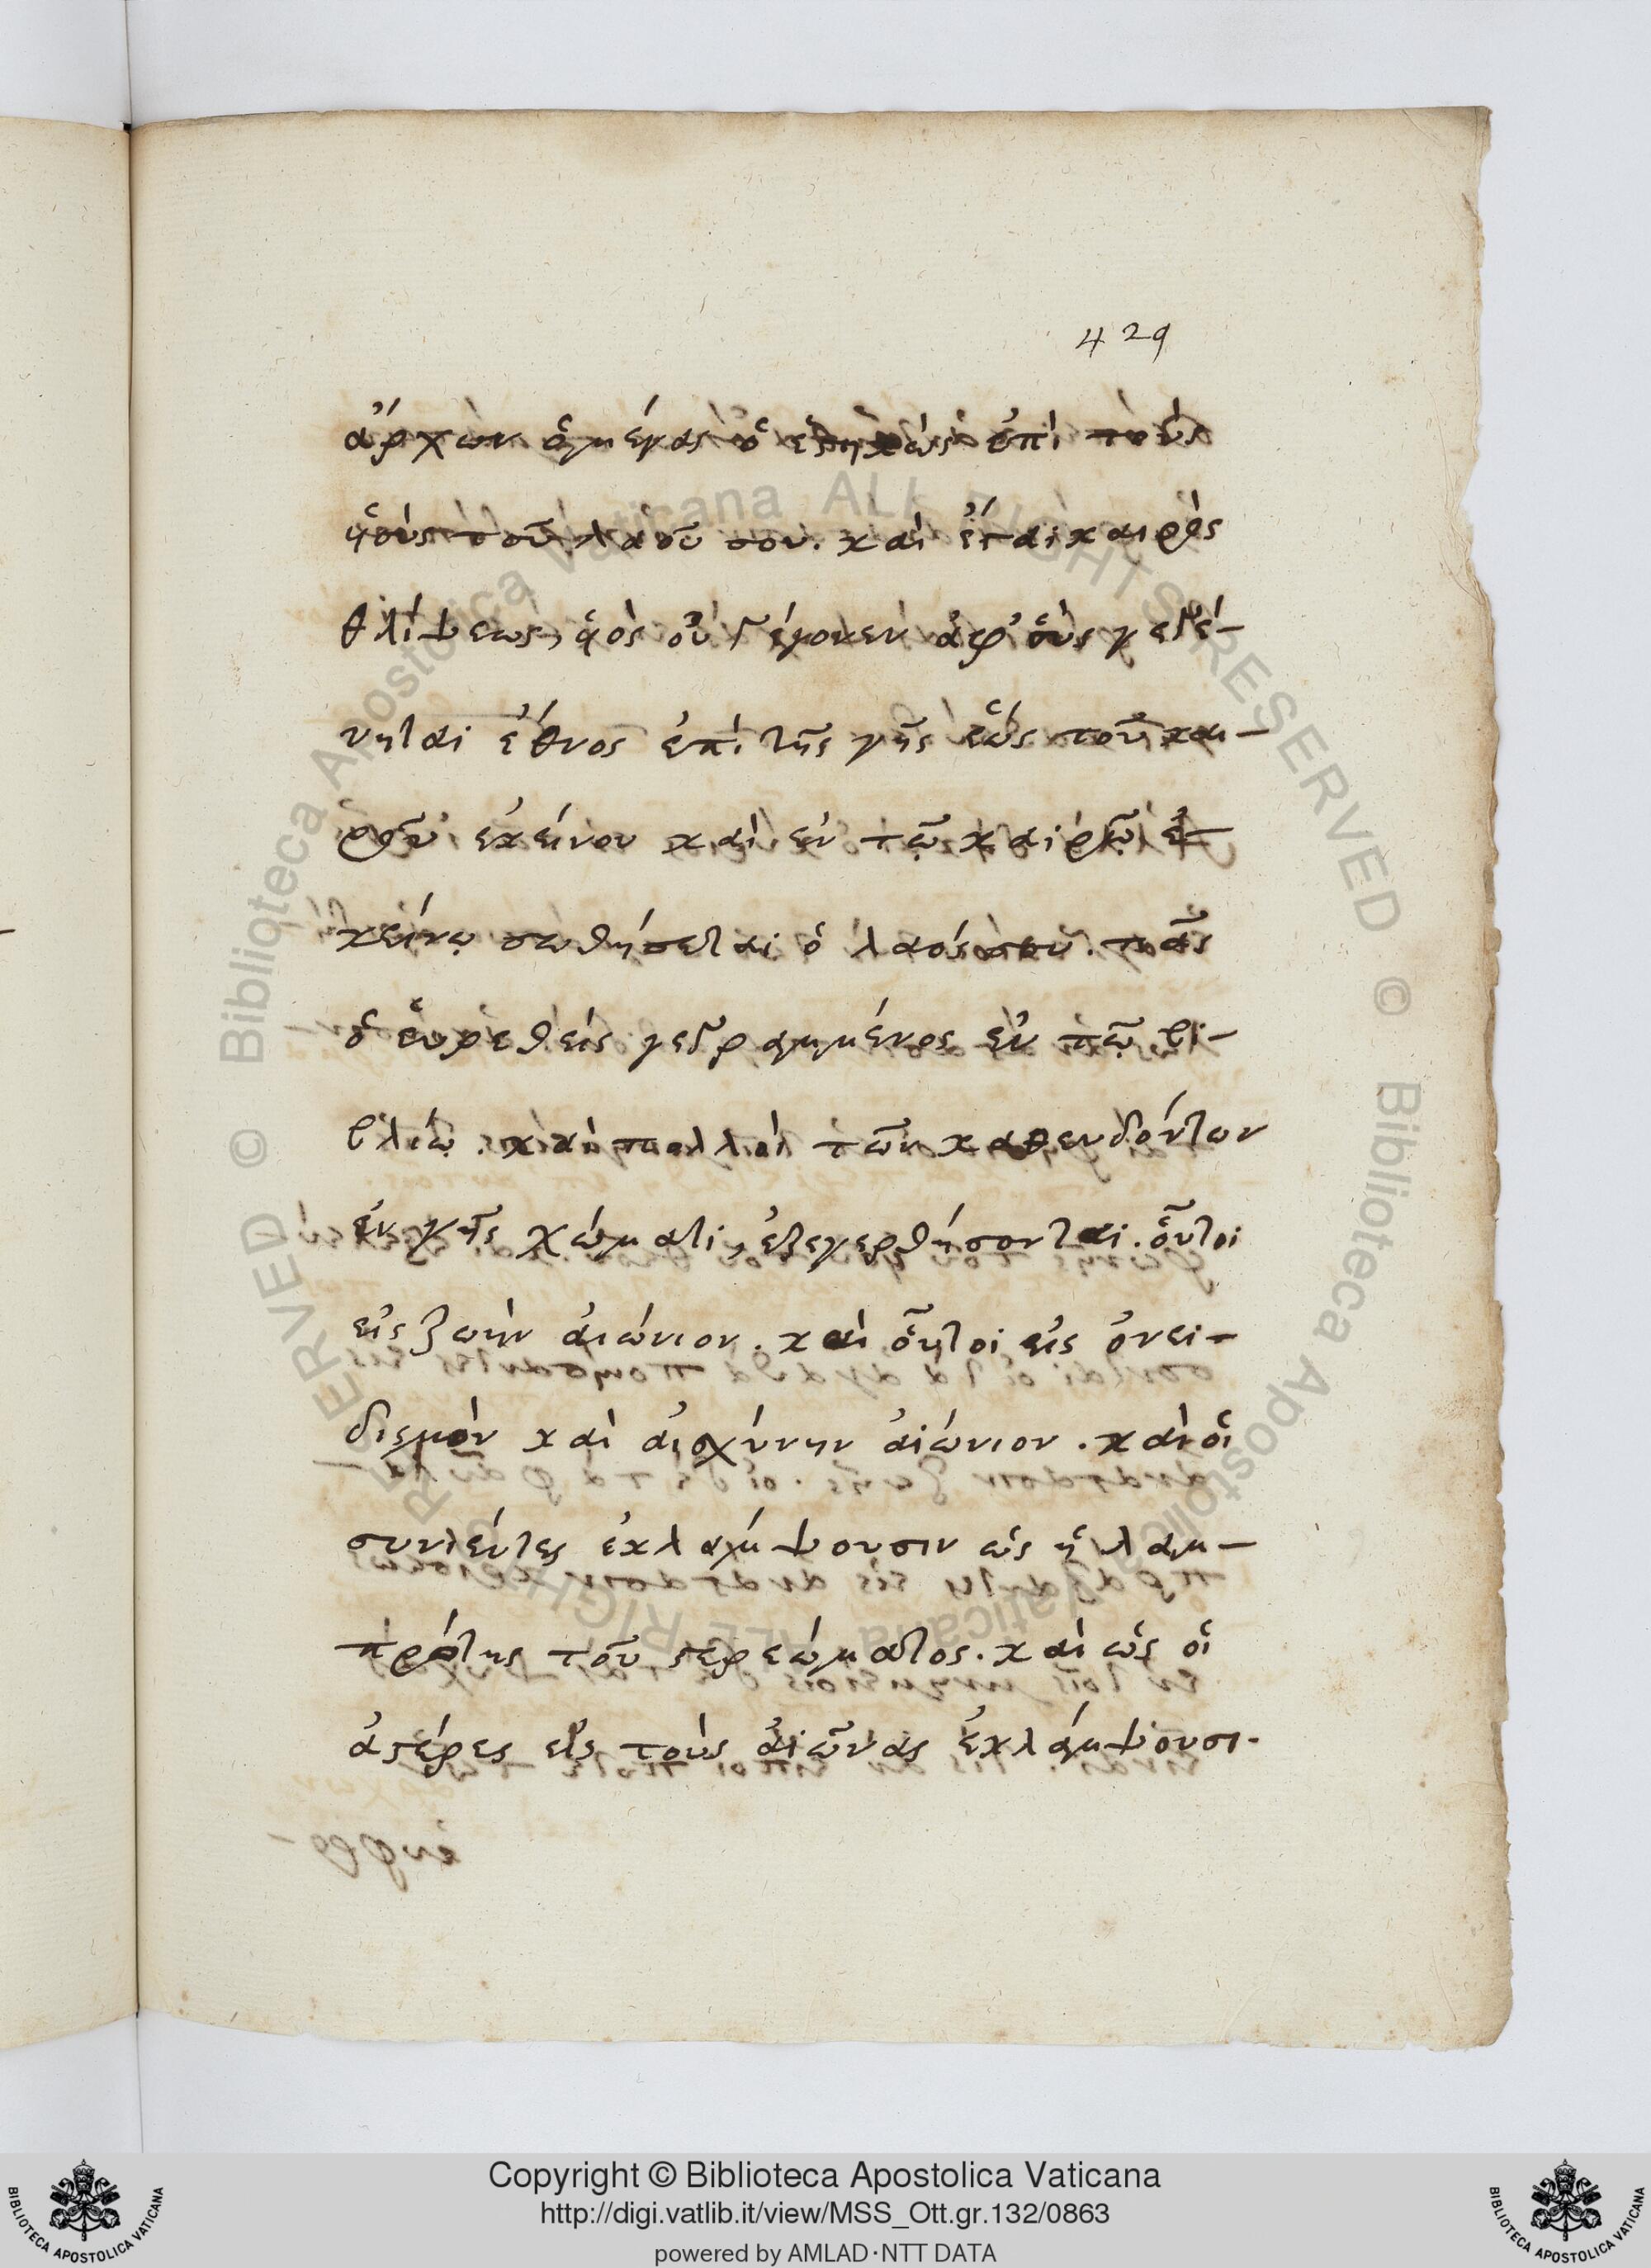 429
ἄρχων ὁ μέγας ὁ ἑστηκὼς ἐπὶ τοὺς
ὑιοὺς τοῦ λαοῦ σου. καὶ ἔσται καιρὸς
θλίψεως, οἷος οὐ γέγονεν ἀφ' οὗ γεγέ-
νηται ἔθνος ἐπὶ τῆς γῆς ἕως τοῦ και-
ροῦ ἐκείνου καὶ ἐν τῷ καιρῷ ἐ-
κείνῳ σωθήσεται ὁ λαός σου. πᾶς
ὁ εὑρεθεὶς γεγραμμένος ἐν τῷ βι-
βλίῳ. καὶ πολλοὶ τῶν καθευδόντων
ἐν γῆς χώματι, ἐξεγερθήσονται. οὗτοι
εἰς ζωὴν ἀιώνιον. καὶ οὗτοι εἰς ὀνει-
δισμὸν καὶ ἀισχύνην ἀιώνιον. καὶ οἱ
συνιέντες ἐκλάμψουσιν ὡς ἡ λαμ-
πρότης τοῦ στερεώματος. καὶ ὡς οἱ
ἀστέρες εἰς τοὺς ἀιῶνας ἐκλάμψουσι.
Copyright © Biblioteca Apostolica Vaticana
http://digi.vatlib.it/view/MSS_Ott.gr.132/0863
powered by AMLAD·NTT DATA
BIBLIOTECA APOSTOLICA VATICANA
BIBLIOTECA APOSTOLICA VATICANA